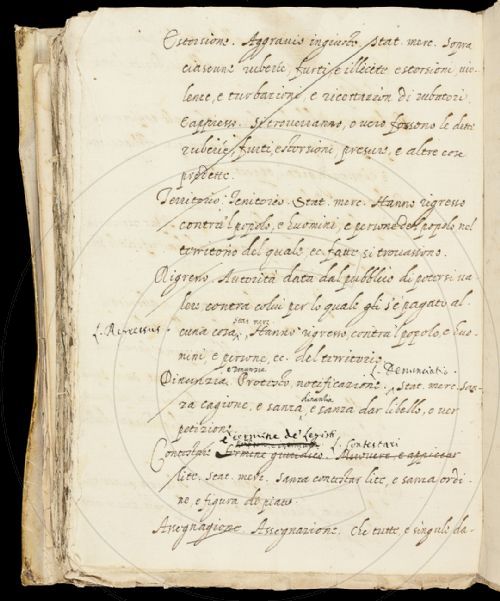 Estorsione. Aggravio ingiusto. Stat. merc. Sopra
ciascune ruberie, furti e illecite estorsioni, vio
lenze, e turbazione, e ricettazion di rubatori.
E appresso. Si troveranno, o vero fossono le dette
ruberie, furti, estorsioni, presure, e altre cose
predette.
Territorio. Tenitorio. Stat. merc. Hanno rigresso
contra 'l popolo, e huomini, e persone del popolo nel
territorio del quale ec. fatte si trovassono.
Rigresso. Autorità data dal pubblico di potersi va
lere contra colui per lo quale gli s'è pagato al
cuna cosa. Stat. merc. Hanno rigresso, contra 'l popolo, e huo
L. Regressus
mini, e persone, ec. del territorio.
e Denunzia L. Denunciatio.
Dinunzia. Protesto, notificazione. Stat. merc. San
za cagione, e sanza dinanzia, e sanza dar libello, o ver
petizione.
è termine de' Legisti L. Contestari
Contestare termine giudidico. Muovere, e appiccar
lite. Stat. merc. Sanza contestar lite, e sanza ordi
ne, e figura di piato.
Assegnagione. Assegnazione. Che tutte, e singule da-